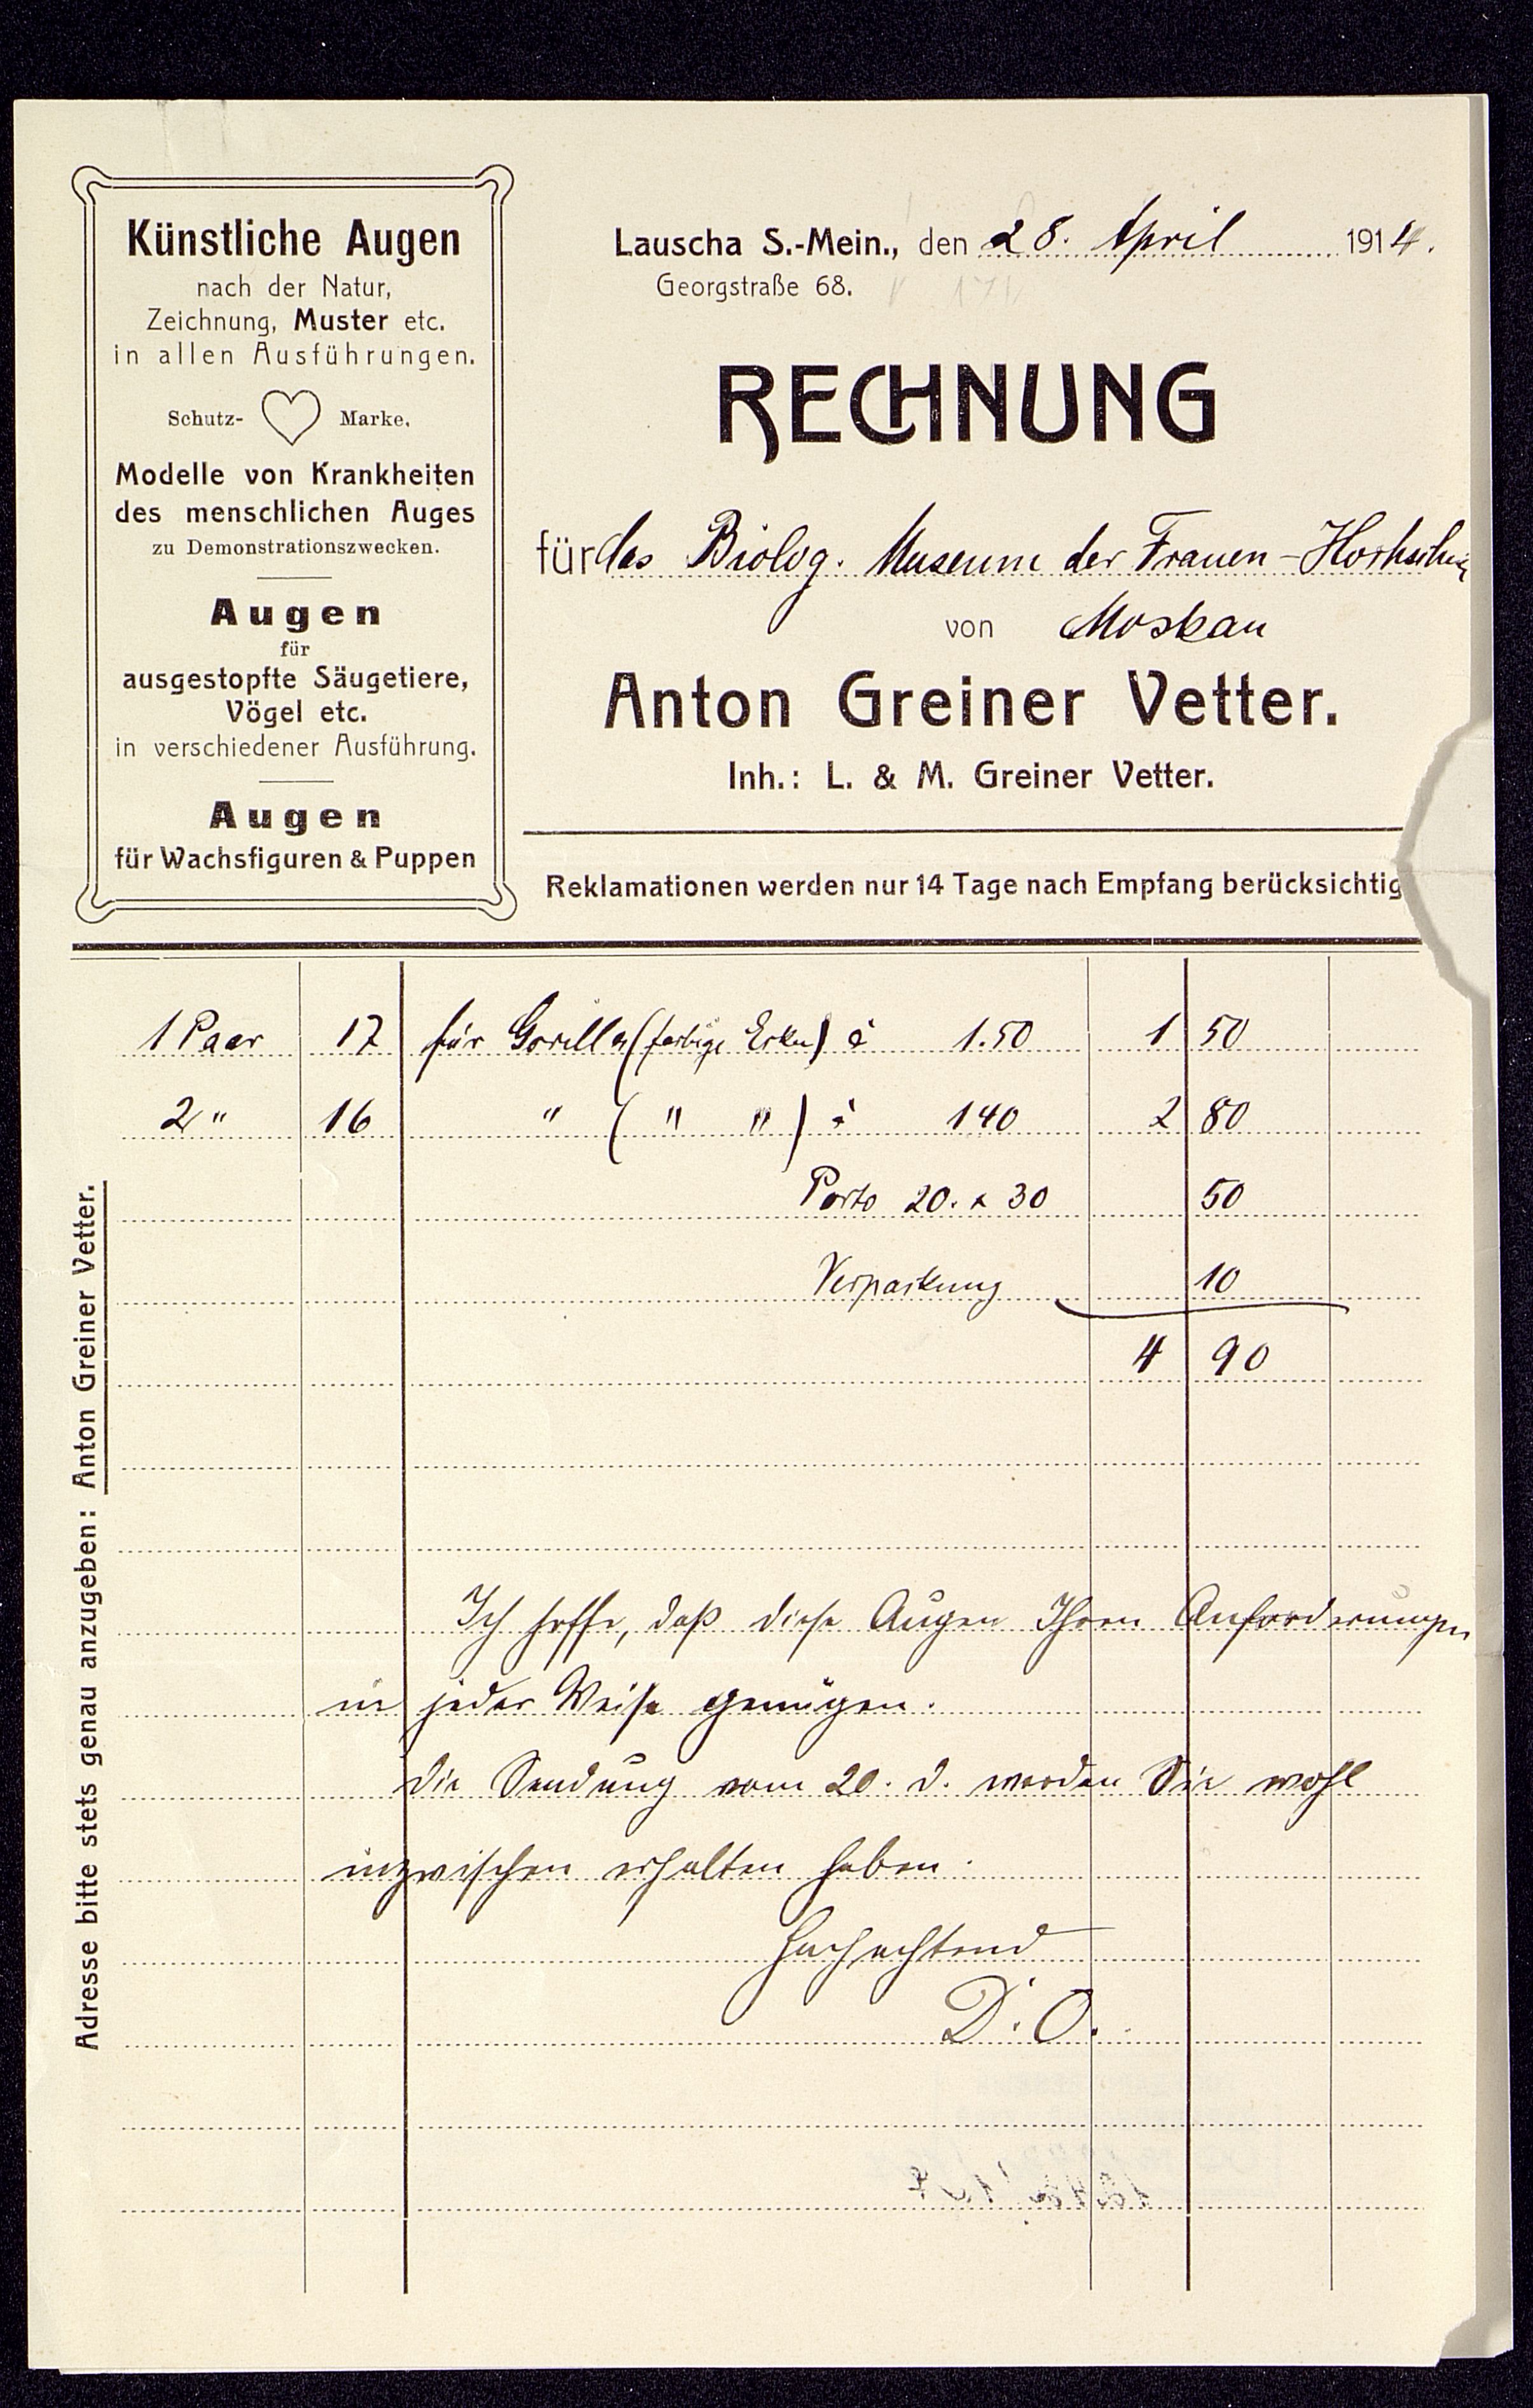 Künstliche Augen
nach der Natur,
Zeichnung, Muster etc.
in allen Ausführungen.
Schutz- Marke.
Modelle von Krankheiten
des menschlichen Auges
zu Demonstrationszwecken.
Augen
für
ausgestopfte Säugetiere,
Vögel etc.
in verschiedener Ausführung.
Augen
für Wachsfiguren & Puppen
Lauscha S.-Mein., den 28. April 1914.
Georgstraße 68.
RECHNUNG
für das Biolog. Museum der Frauen-Hochschule
von Moskau
Anton Greiner Vetter.
Inh.: L. & M. Greiner Vetter.
Reklamationen werden nur 14 Tage nach Empfang berücksichtig
1 Paar 17 für Gorilla (farbige Ecken) à 1.50 1 50
2 " 16 " ( " " ) à 140 2 80
Porto 20. + 30 50
Verpackung 10
4 90
Ich hoffe, daß diese Augen Ihren Anforderungen
in jeder Weise genügen.
Die Sendung vom 20. d. werden Sie wohl
inzwischen erhalten haben.
Hochachtend
D. O.
Adresse bitte stets genau anzugeben: Anton Greiner Vetter.